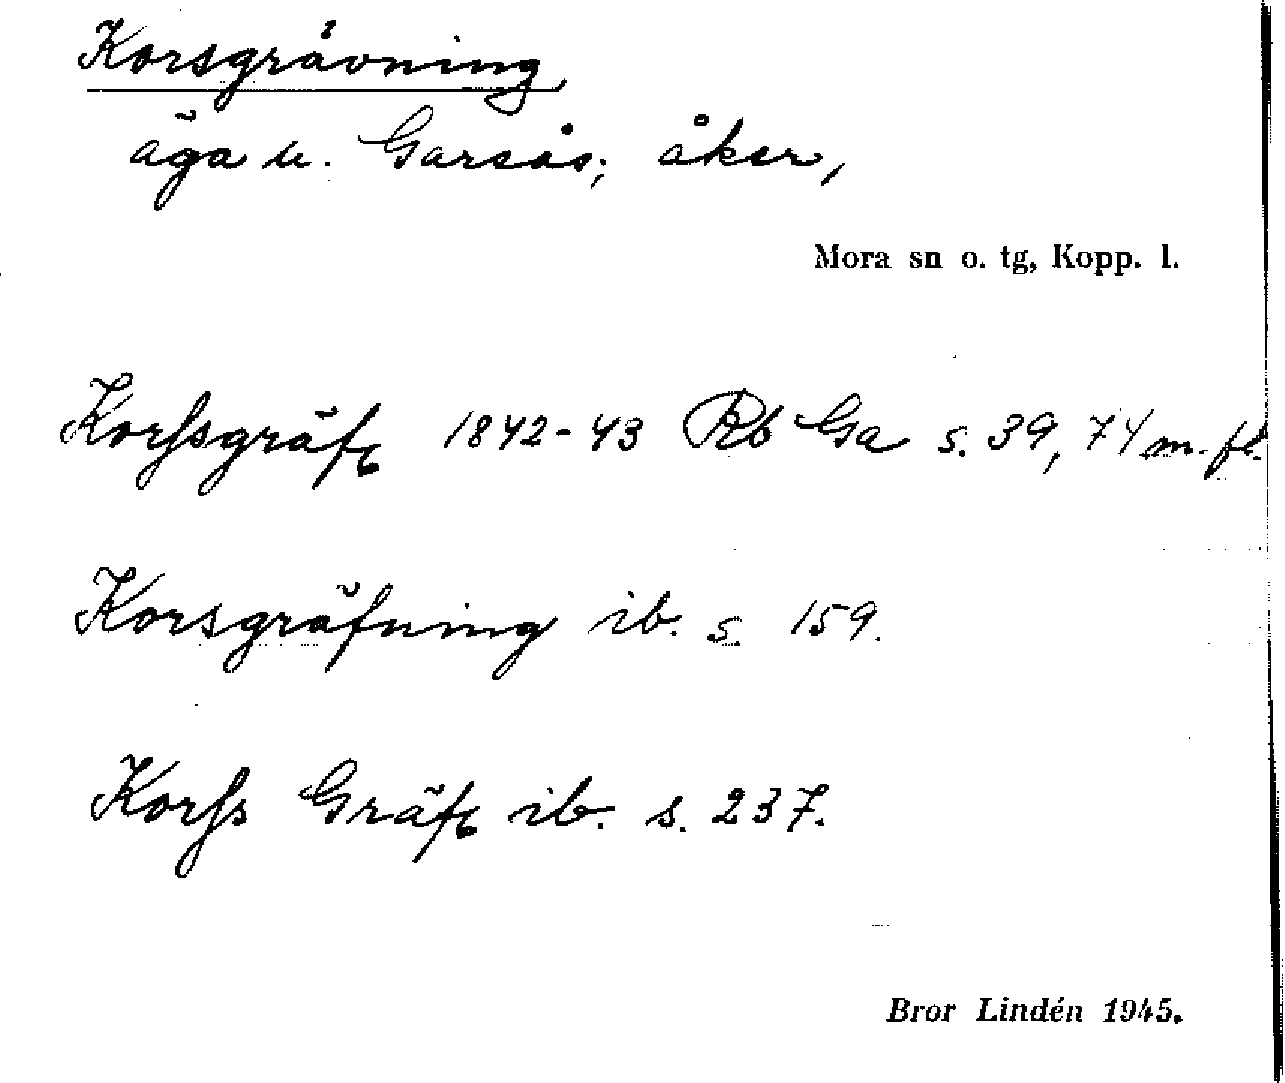 Korsgrävning,
äga u. Garsås; åker,
Mora sn o. tg, Kopp. l.
Korssgräf 1842-43 Rb Ga s. 39, 74 m. fl.
Korsgräfning ib. s. 159.
Korss Gräf ib. s. 237.
Bror Lindén 1945.